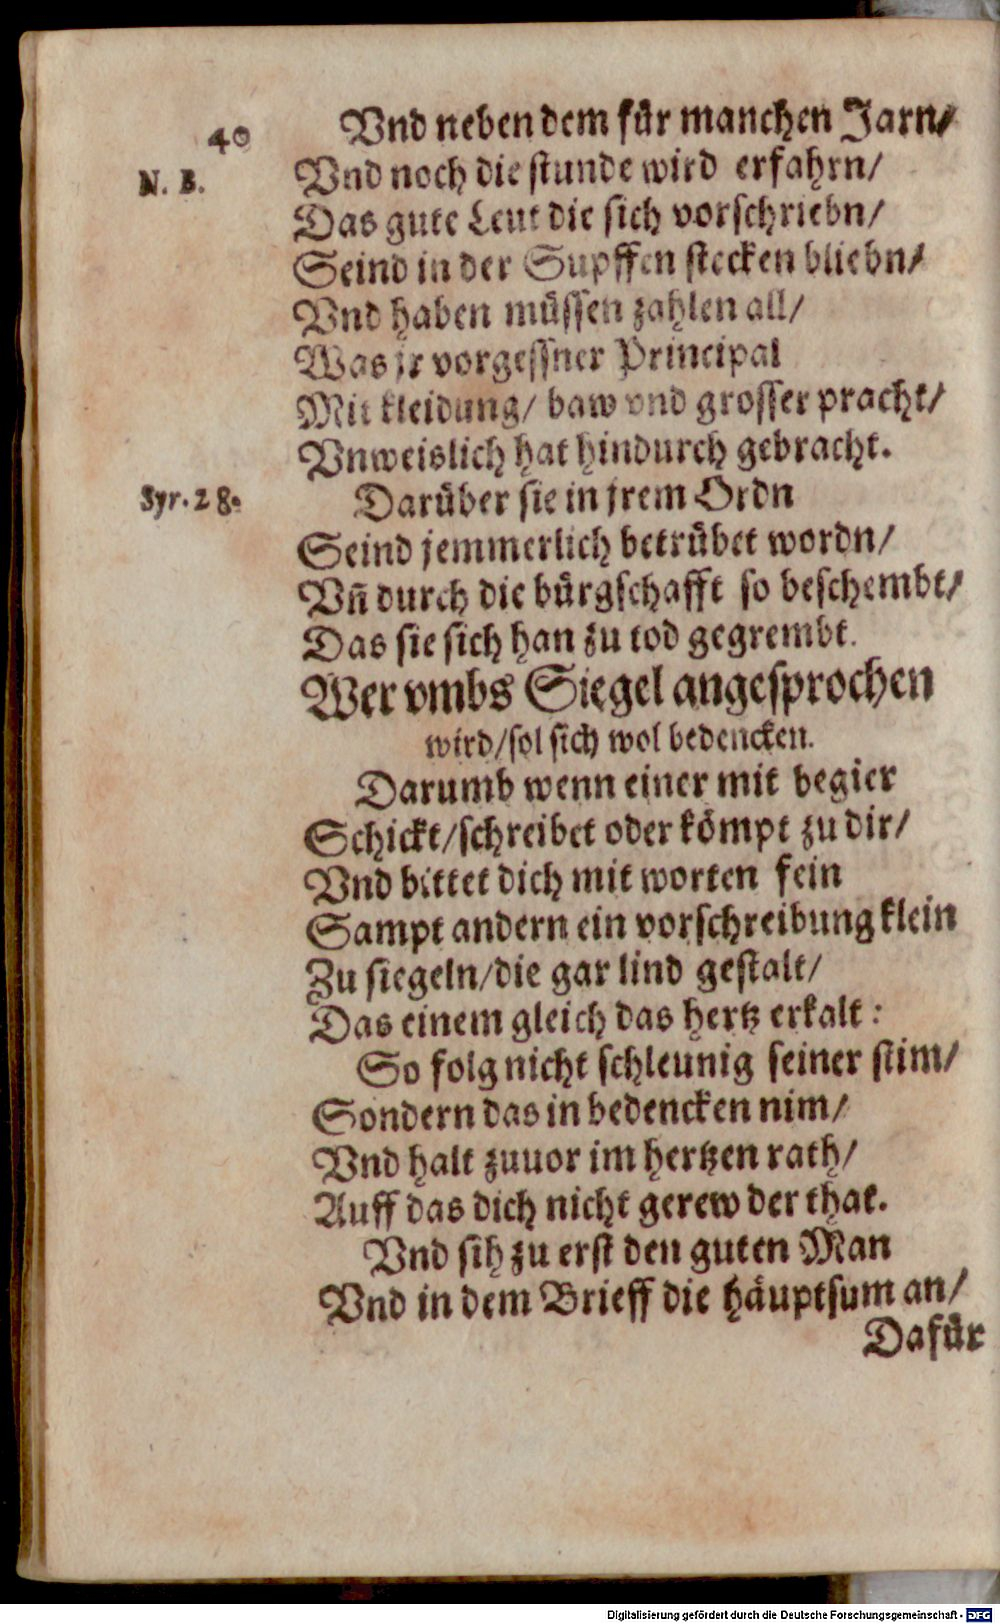 40
Vnd neben dem für manchen Jarn/
N. B.
Vnd noch die stunde wird erfahrn/
Das gute Leut die sich vorschriebn/
Seind in der Supffen stecken bliebn/
Vnd haben müssen zahlen all/
Was jr vorgessner Principal
Mit kleidung/ baw vnd grosser pracht/
Vnweislich hat hindurch gebracht.
Syr. 28.
Darüber sie in jrem Ordn
Seind jemmerlich betrübet wordn/
Vñ durch die bürgschafft so beschembt/
Das sie sich han zu tod gegrembt.
Wer vmbs Siegel angesprochen
wird/sol sich wol bedencken.
Darumb wenn einer mit begier
Schickt/schreibet oder kömpt zu dir/
Vnd bittet dich mit worten fein
Sampt andern ein vorschreibung klein
Zu siegeln/die gar lind gestalt/
Das einem gleich das hertz erkalt:
So folg nicht schleunig seiner stim/
Sondern das in bedencken nim/
Vnd halt zuuor im hertzen rath/
Auff das dich nicht gerew der that.
Vnd sih zu erst den guten Man
Vnd in dem Brieff die häuptsum an/
Dafür
Digitalisierung gefördert durch die Deutsche Forschungsgemeinschaft - DFG